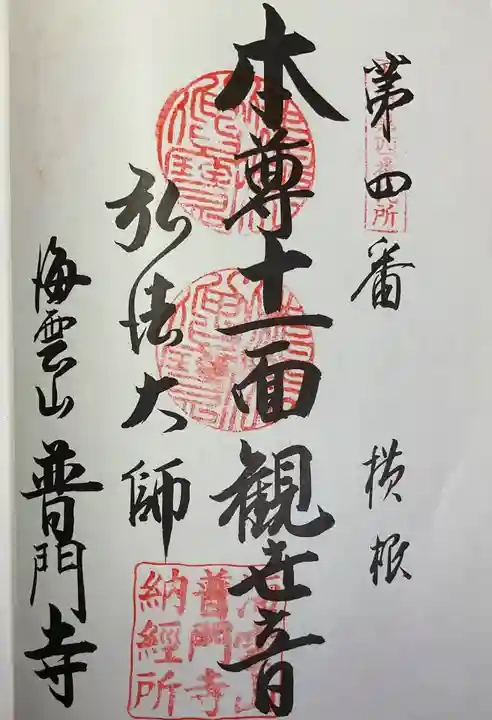 第四番 横根
本尊十一面観世音
弘法大師
海雲山 普門寺
海雲山
普門寺
納経所